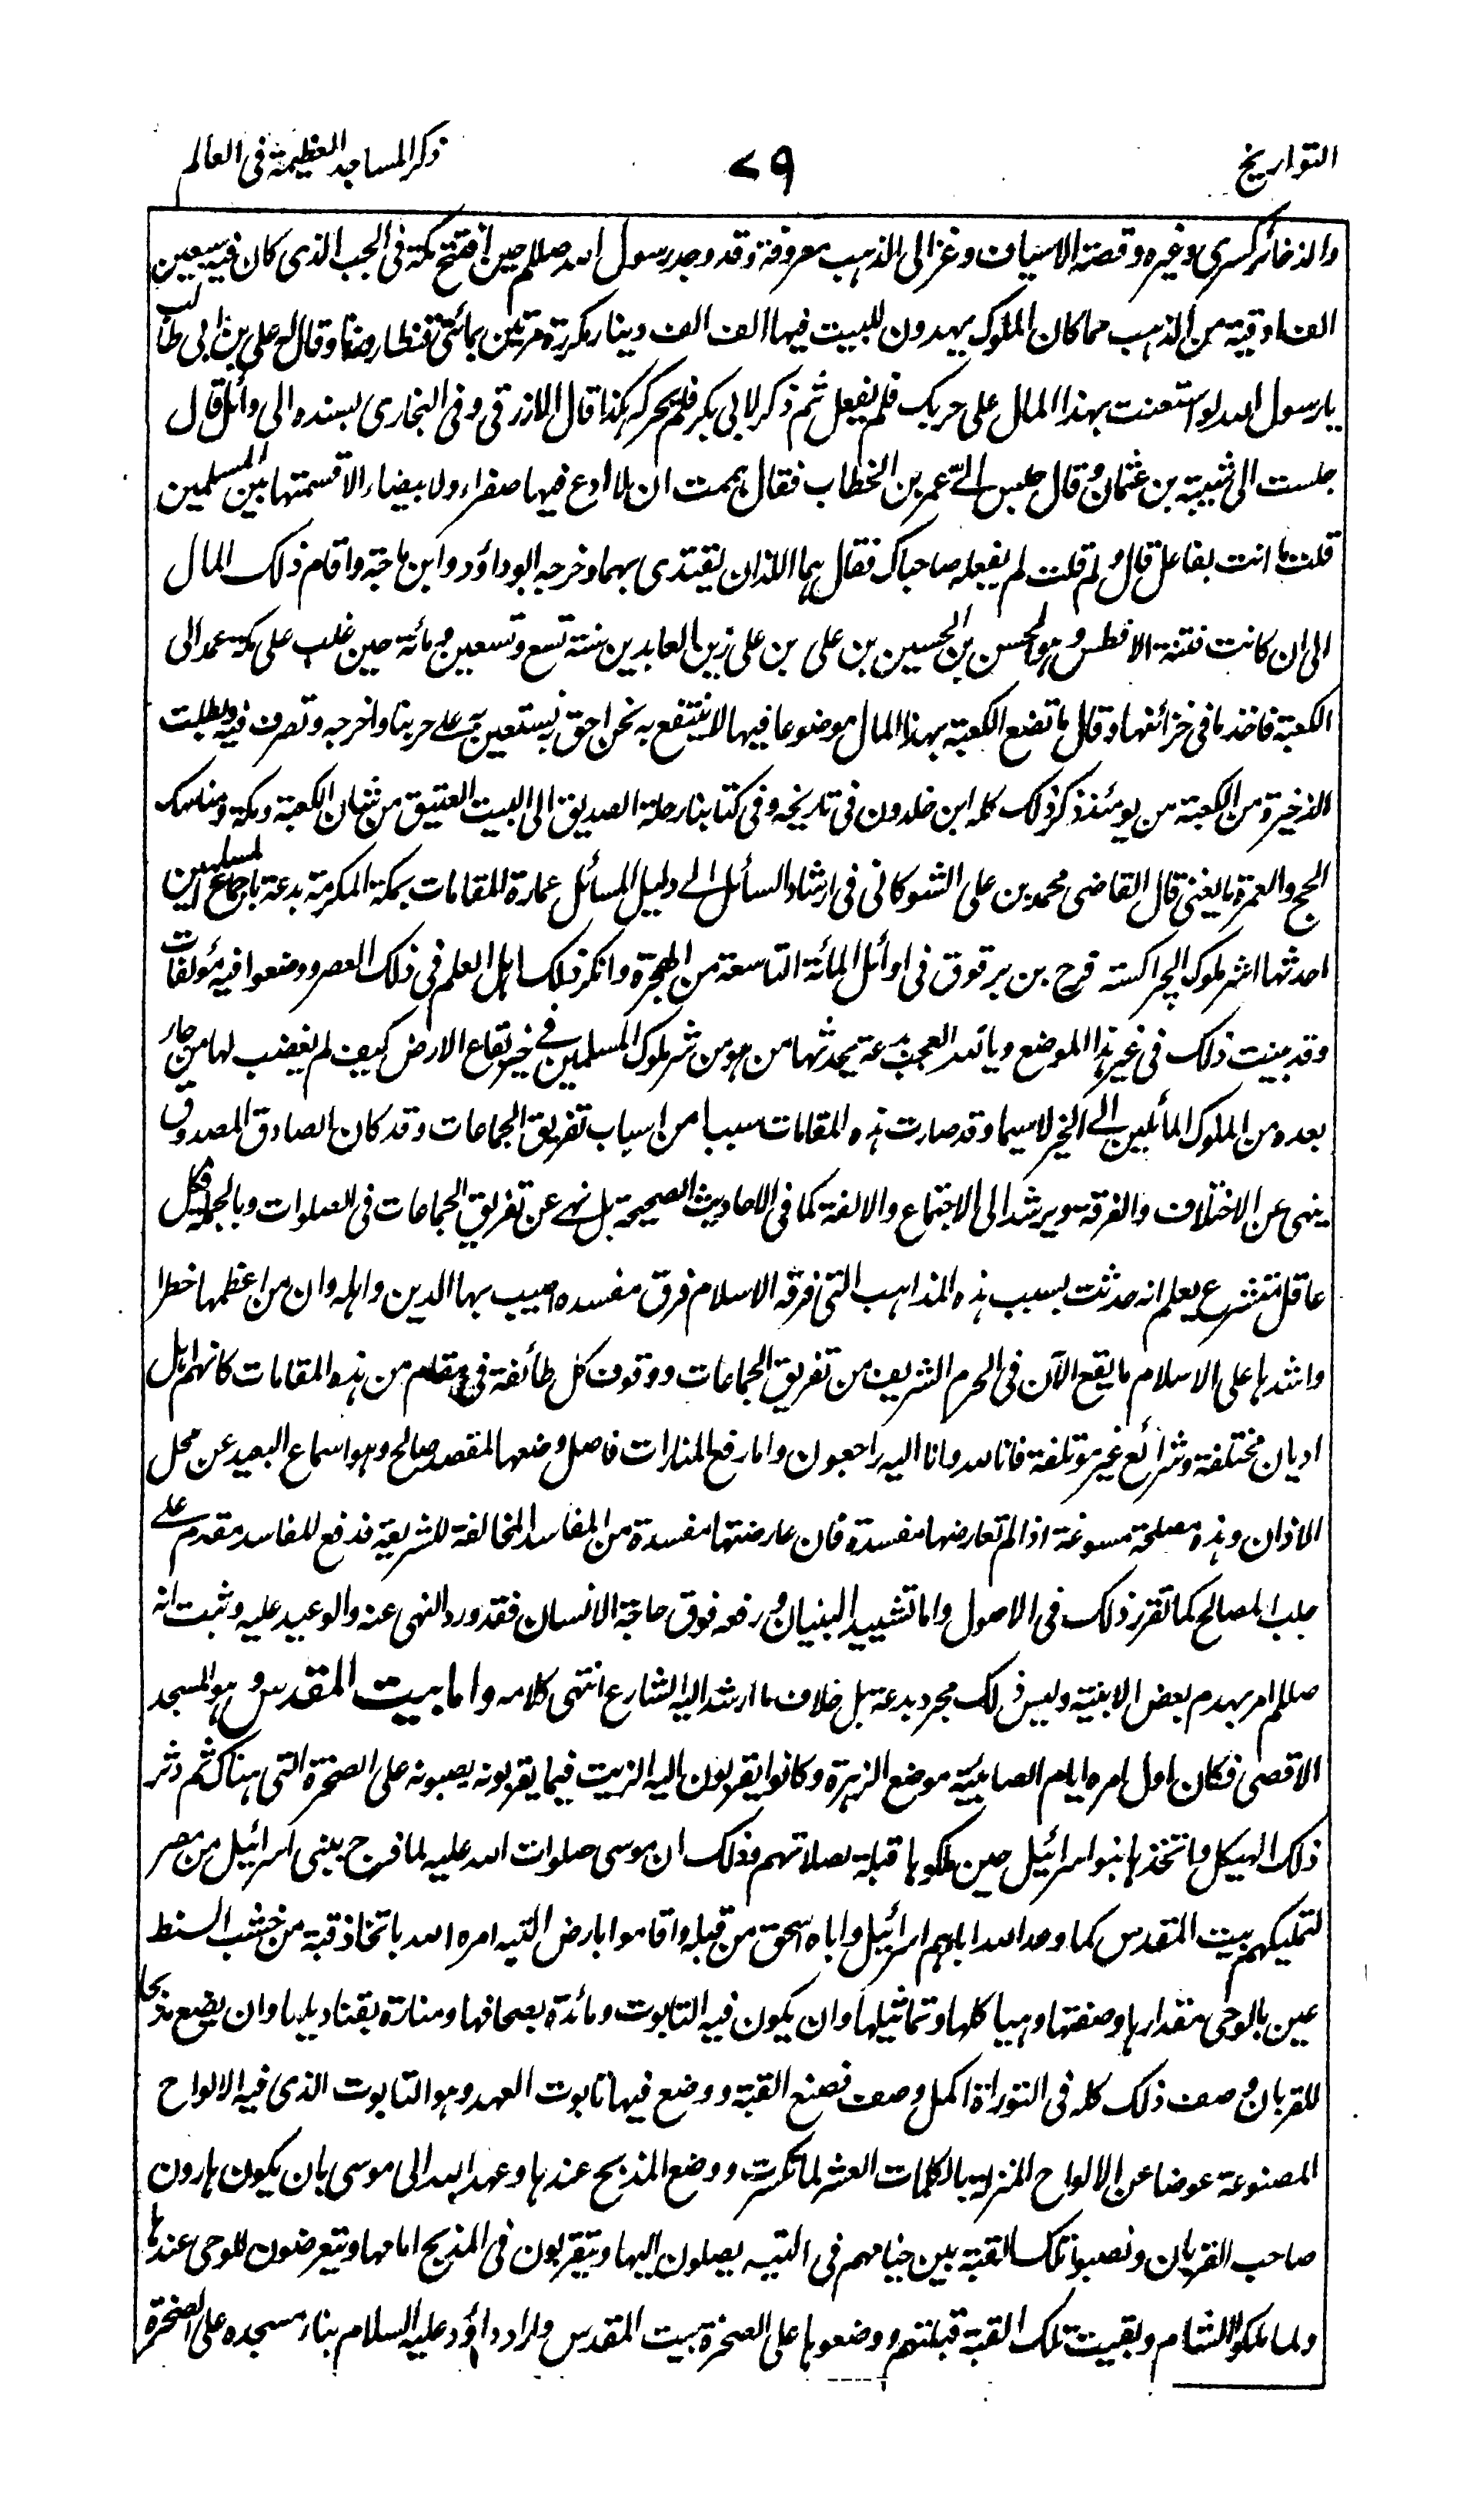 التواريخ ٧٩ ذكر المساجد العظيمة فى العالم
والذخائر كسرى وغيره وقصة الاسياف وغزالى الذهب معروفة وقد وجد رسول الله صللم حين افتتح مكة فى الجب الذى كان فيه سبعين
الف اوقية من الذهب مما كان الملوك يهدون للبيت فيها الف الف دينار مكررة مرتين بمائتى قنطار وزنا وقال له على بن ابى طالب
يا رسول الله لو استعنت بهذا المال على حربك فلم يفعل ثم ذكر لابى بكر فلم يحركه هكذا قال الازرقى وفى البخارى بسنده الى وائل قال
جلست الى شيبة بن عثمان وقال جلس الىّ عمر بن الخطاب فقال هممت ان لا ادع فيها صفراء ولا بيضاء الا قسمتها بين المسلمين
قلت ما انت بفاعل قال ولم قلت لم يفعله صاحباك فقال هما اللذان يقتدى بهما وخرجه ابو داؤد وابن ماجة واقام ذلك المال
الى ان كانت فتنة الافطس وهو الحسن بن الحسين بن على بن على زين العابدين سنة تسع وتسعين ومائة حين غلب على مكة عمد الى
الكعبة فاخذ ما فى خزائنها وقال ما تضع الكعبة بهذا المال موضوعا فيها لا ينتفع به نحن احق به نستعين به على حربنا واخرجه وتصرف فيه وبطلت
الذخيرة من الكعبة من يومئذ ذكر ذلك كله ابن خلدون فى تاريخه وفى كتابنا رحلة الصديق الى البيت العتيق من شان الكعبة ومكة ومناسك
الحج والعمرة ما يغنى قال القاضى محمد بن على الشوكانى فى ارشاد السائل الى دليل المسائل عمارة المقامات بمكة المكرمة بدعة باجماع المسلمين
احدثها اشر ملوك الچراكسة فرج بن برقوق فى اوائل المائة التاسعة من الهجرة وانكر ذلك اهل العلم فى ذلك العصر ووضعوا فيه مؤلفات
وقد بينت ذلك فى غير هذا الموضع ويا لله العجب من بدعة يحدثها من هو من شر ملوك المسلمين فى خير بقاع الارض كيف لم يغضب لها من جاء
بعده من الملوك المائلين الى الخير لاسيما وقد صارت هذه المقامات سببا من اسباب تفريق الجماعات وقد كان الصادق المصدوق
ينهى عن الاختلاف والفرقة ويرشد الى الاجتماع والالفة كما فى الاحاديث الصحيحة بل نهى عن تفريق الجماعات فى الصلوات وبالجملة فكل
عاقل متشرع يعلم انه حدثت بسبب هذه المذاهب التى فرقه الاسلام فرق مفسده اصيب بها الدين واهله وان من اعظمها خطرا
واشدها على الاسلام ما يقع الآن فى الحرم الشريف من تفريق الجماعات ووقوف كل طائفة فى مقام من هذه المقامات كانهم اهل
اديان مختلفة وشرائع غير مؤتلفة فانا لله وانا اليه راجعون واما رفع المنارات فاصل وضعها لمقصد صالح وهو اسماع البعيد عن محل
الاذان وهذه مصلحة مسوغة اذا لم تعارضها مفسدة فان عارضتها مفسدة من المفاسد المخالفة للشريعة فدفع المفاسد مقدم على
جلب المصالح كما تقرر ذلك فى الاصول واما تشييد البنيان ورفعه فوق حاجة الانسان فقد ورد النهى عنه والوعيد عليه وثبت انه
صللم امر بهدم بعض الابنية وليس ذلك مجرد بدعة بل خلاف ما ارشد اليه الشارع انتهى كلامه واما بيت المقدس وهو المسجد
الاقصى فكان اول امره ايام الصابئية موضع الزهرة وكانوا يقربون اليه الزيت فيما يقربونه يصبونه على الصخرة التى هناك ثم دثر
ذلك الهيكل واتخذها بنو اسرائيل حين ملكوها قبلة لصلاتهم وذلك ان موسى صلوات الله عليه لما خرج ببنى اسرائيل من مصر
لتمليكهم بيت المقدس كما وعد الله اباهم اسرائيل واباه اسحق من قبله واقاموا بارض التيه امره الله باتخاذ قبة من خشب السنط
عين بالوحى مقدارها وصفتها وهياكلها وتماثيلها وان يكون فيه التابوت ومائدة بصحافها ومنارة بقناديلها وان يضع مذبحا
للقربان وصف ذلك كله فى التوراة اكمل وصف فصنع القبة ووضع فيها تابوت العهد وهو التابوت الذى فيه الالواح
المصنوعة عوضا عن الالواح المنزلة بالكلمات العشر لما تكسرت ووضع المذبح عندها وعهد الله الى موسى بان يكون هارون
صاحب القربان ونصبوا تلك القبة بين خيامهم فى التيه يصلون اليها ويتقربون فى المذبح امامها ويتعرضون للوحى عندها
ولما ملكوا الشام وبقيت تلك القبة قبلتهم ووضعوها على الصخرة ببيت المقدس واراد داؤد عليه السلام بناء مسجده على الصخرة